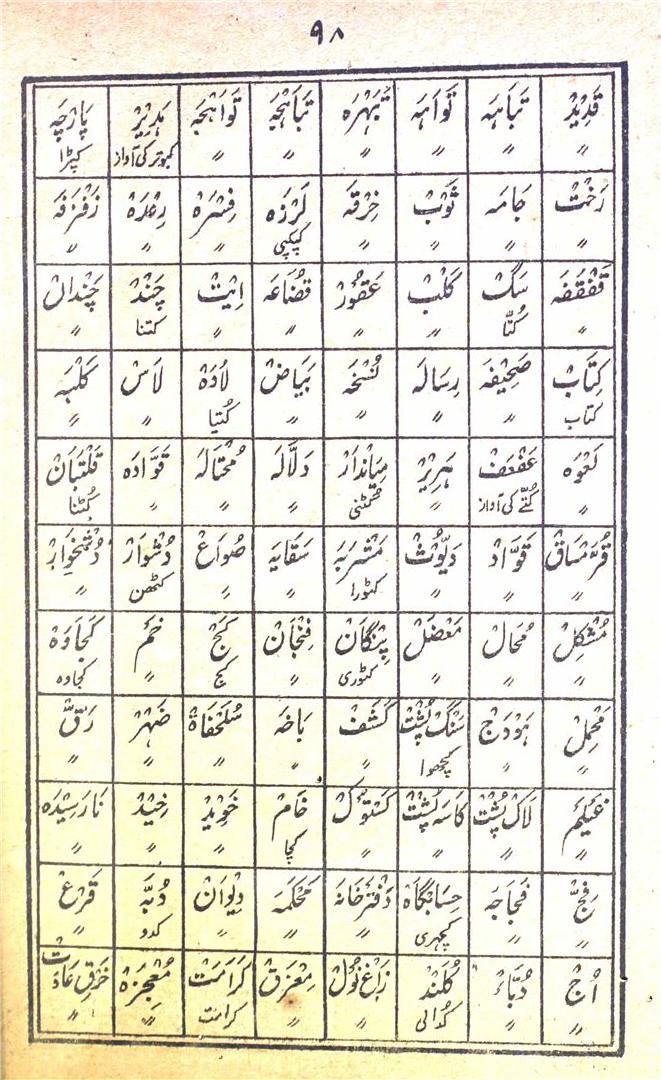 ۹۸
قَدِیْد تَبَاہَہ تَوَاہَہ تَبَہْرَہ تَبَاہْجَہ تَوَاہْجَہ ہَدِیْر پَارْچَہ
〃 〃 〃 〃 〃 〃 کبوتر کی آواز کپڑا
رَخْتْ جَامَہ ثَوْبْ خِرْقَہ لَرْزَہ فِسْرَہ رِعْدَہ زَفْزَفَہ
〃 〃 〃 〃 کپکپی 〃 〃 〃
قَفْقَفَہ سَگْ کَلْبْ عَقُوْرْ قُضَاعَہ اِیْتْ چَنْدْ چَنْدَانْ
〃 کُتّا 〃 〃 〃 〃 کتنا 〃
کِتَابْ صَحِیْفَہ رِسَالَہ نُسْخَہ بَیَاضْ لَادَہْ لَاسْ کَلْبَہ
کتاب 〃 〃 〃 〃 کُتیا 〃 〃
لَعْوَہ عَفْعَفْ ہَرِیْرْ مِیَانْدَارْ دَلَّالَہ مُحْتَالَہ قَوَّادَہ قَلْتَبَانْ
〃 کُتّے کی آواز 〃 کُٹنی 〃 〃 〃 کُٹنا
قُرَّمْسَاقْ قَوَّادْ دَیُّوْثْ مَشْرَبَہ سَقَایَہ صُوَاعْ دُشْوَارْ دُشْخْوَارْ
〃 〃 〃 کٹورا 〃 〃 کٹھن 〃
مُشْکِلْ مُحَالْ مَعْضَلْ پِنْگَانْ فِنْجَانْ کَجْ خَمْ کَجَاوَہْ
〃 〃 〃 کٹوری 〃 کج 〃 کجاوہ
مَحْمِلْ ہَوْدَجْ سَنْگْ پُشْتْ کَشَفْ بَاخَہ سُلَحْفَاۃْ ضَہْرْ رَقّْ
〃 〃 کچھوا 〃 〃 〃 〃 〃
غَیْلَمْ لَاکْ پُشْتْ کَاسَہ پُشْتْ کَشْتُوْکْ خَامْ خَوِیْدْ خِیْدْ نَارَسِیْدَہْ
〃 〃 〃 〃 کچا 〃 〃 〃
فِجّْ فَجَاجَہ حِسَابْگَاہْ دَفْتَرْخَانَہ مَحْکَمَہ دِیْوَانْ دُبَّہ قَرْعْ
〃 〃 کچہری 〃 〃 〃 کدو 〃
اُجْ دُبَّاءْ کُلَنْدْ زَاغْ نُوْلْ مِعْزَقْ کَرَامَتْ مُعْجِزَہْ خَرْقِ عَادَتْ
〃 〃 کدالی 〃 〃 کرامت 〃 〃